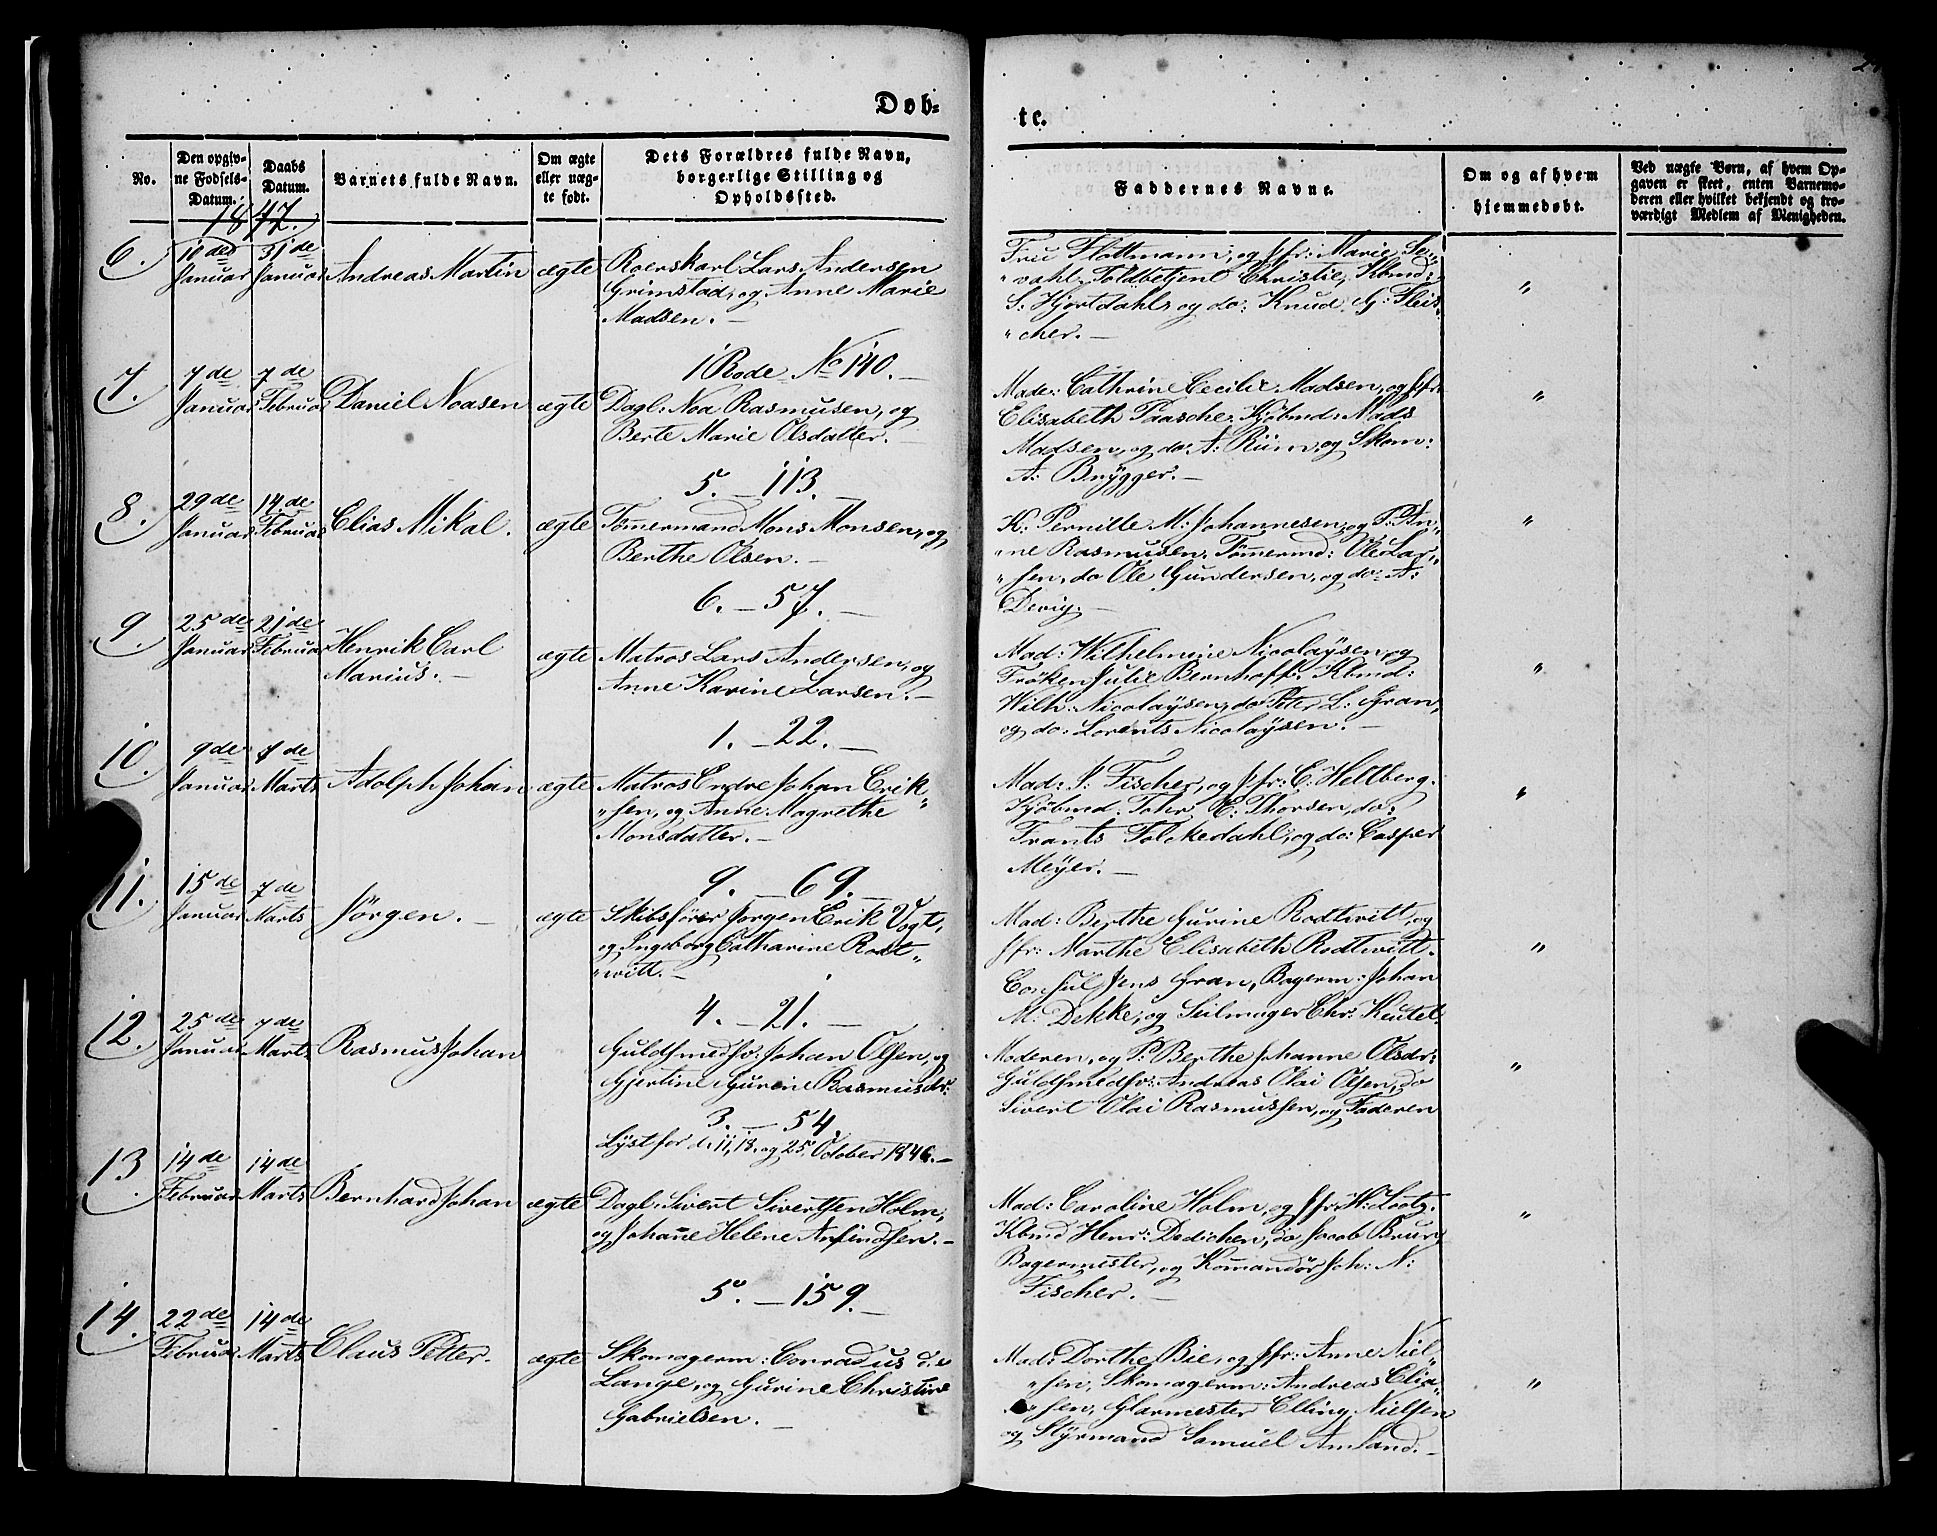 Døb-
te.
No.
Den opgiv-
ne Fødsels-
Datum.
Daabs
Datum.
Barnets fulde Navn.
Om ægte
eller uæg-
te født.
Dets Forældres fulde Navn,
borgerlige Stilling og
Opholdssted.
Faddernes Navne.
Om og af hvem
hjemmedøbt.
Ved uægte Børn, af hvem Op-
gaven er skeet, enten Barnemo-
deren eller hvilket bekjendt og tro-
værdigt Medlem af Menigheden.
1847.
6.
10de
Januar
31de
Januar
Andreas Martin
ægte
Roerskarl Lars Andersen
Grimstad, og Anne Marie
Madsen.
1 Rode No 140.
Fru Flottmann, og Jfr: Marie Se-
vahl, Toldbetjent Christie, Kbmd:
S. Hjortdahl, og do: Knud G: Fleis-
cher.
"
7.
7de
Januar
7de
Februar
Daniel Noasen
ægte
Dagl: Noa Rasmusen, og
Berte Marie Olsdatter.
5. — 113.
Made: Cathrine Cecilie Madsen, og Jfr:
Elisabeth Paasche, Kjøbmd: Mads
Madsen, og do: A: Riim, og Skom:
A: Brygger.
"
8.
29de
Januar
14de
Februar
Elias Mikal.
ægte
Tømermand Mons Monsen, og
Berthe Olsen.
6. — 57.
K: Pernille M: Johannesen, og P: An-
ne Rasmusen, Tømermd: Ole Lar-
sen, do Ole Gundersen, og do: A:
Devig.
"
9.
25de
Januar
21de
Februar
Henrik Carl
Marius.
ægte
Matros Lars Andersen, og
Anne Karine Larsen.
1. — 22.
Mad: Wilhelmine Nicolaysen, og
Frøken Julie Bernhoff, Kbmd:
Wilh: Nicolaysen, do Peter L: Gran,
og do: Lorents Nicolaysen.
"
10.
9de
Januar
7de
Marts
Adolph Johan
ægte
Matros Endre Johan Erik-
sen, og Anne Magrethe
Monsdatter.
9. — 69.
Mad: J: Fischer, og Jfr: C: Hellberg.
Kjøbmd: Fohr. C: Thorsen, do:
Frants Folckedahl, og do: Casper
Meyer.
"
11.
15de
Januar
7de
Marts
Jørgen.
ægte
Skibsfører Jørgen Erik Vogt,
og Ingeborg Catharine Rodt-
witt.
4. — 21.
Mad: Berthe Gurine Rodtwitt, og
Jfr: Marthe Elisabeth Rodtwitt.
Consul Jens Gran, Bagerm: Johan
M: Dekke, og Seilmager Chr: Keutel.
"
12.
25de
Januar
7de
Marts
Rasmus Johan
Guldsmedsv: Johan Olsen, og
Gjertine Gurine Rasmusdr:
3. — 54.
Lyst for d. 11, 18. og 25. October 1846.
Moderen, og P: Berthe Johanne Olsdr:
Guldsmedsv: Andreas Olai Olsen, do
Sivert Olai Rasmussen, og Faderen
"
13.
14de
Februar
14de
Marts
Bernhard Johan
ægte
Dagl: Sivert Sivertsen Holm,
og Johanne Helene Anfindsen.
5. — 159.
Mad: Caroline Holm, og Jfr: H: Lootz.
Kbmd Henr: Dedichen, do Jacob Bruun
Bagermester, og Komandør Joh: N:
Fischer.
"
14.
22de
Februar
14de
Marts
Claus Petter.
ægte
Skomagerm: Conradus de
Lange, og Gurine Christine
Gabrielsen.
Mad: Dorthe Bie, og Jfr: Anne Niel-
sen, Skomagerm: Andreas Elia-
sen, Glarmester Elling Nielsen
og Styrmand Samuel Amland.
"